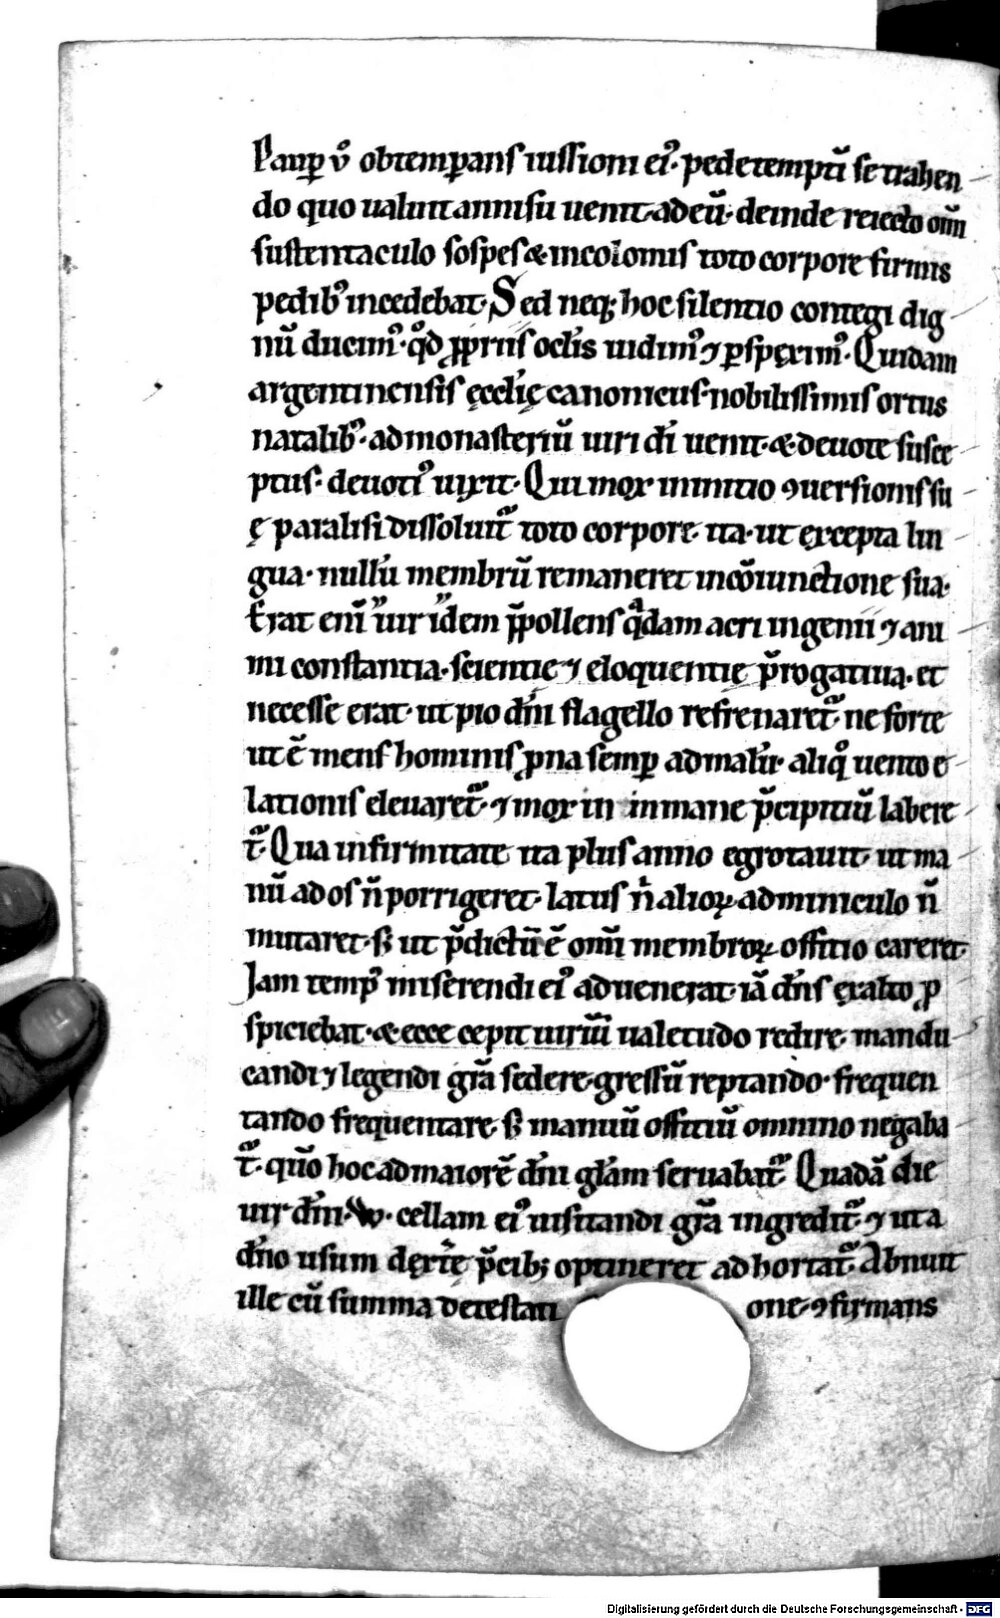 Paup̲ v̊ obtemp̲ans iussioni ei᷒· pedetemptī se trahen
do quo ualuit annisu uenit· ad eū· deinde reiecto om̄i
sustentaculo sospes & incolomis toto corpore firmis
pedib᷒ incedebat· Sed neq; hoc silentio contegi dig
nū ducim᷒· qd̊ p̲priis oclis uidim᷒ ⁊ p̲spęxim᷒· Quidam
argentinensis ęccl̄ię canonicus· nobilissimis ortus
natalib᷒· ad monasteriū uiri dī uenit· & deuote susce
ptus· deuoti᷒ uixit· Qui mox in initio ꝯuersionis su
ę paralisi dissoluit᷑ toto corpore· ita· ut excepta lin
gua· nulli᷒ membrū remaneret in cōiunctione sua·
Erat enī uir idem p̄pollens qᵃdam acri ingenii ⁊ ani
mi constantia· scientię ⁊ eloquentię p̄rogatiua· et
necesse erat· ut pio dn̄i flagello refrenaret᷑· ne forte
ut ē mens hominis p̲na semp̲ ad malū· aliq̊ uento e
lationis eleuaret᷑· ⁊ mox in inmane p̄cipitiū labere
t᷑· Qua infirmitate ita plus anno egrotauit· ut ma
nū ad os n̄ porrigeret· latus n̄ alioꝝ adminiculo n̄
mutaret· ſꝫ ut p̄dictū ē om̄i membroꝝ offitio careret·
Jam temp᷒ miserendi ei᷒ aduenerat· iā dn̄s ex alto p̲
spiciebat· & ecce cepit uiriū ualetudo redire· mandu
candi ⁊ legendi gr̄a sedere· gressū reptando· frequen
tando frequentare· ſꝫ manuū offitiū omnino negaba
t᷑· qūo hoc ad maiorē dn̄i gl̄am seruabat᷑· Quadā die
uir dn̄i· W· cellam ei᷒ uisitandi gr̄a ingredit᷑· ⁊ ut a
dn̄o usum dext̄e p̄cib; optineret adhortat᷑· Abnuit
ille cū summa detestati one· ꝯfirmans
Digitalisierung gefördert durch die Deutsche Forschungsgemeinschaft - DFG